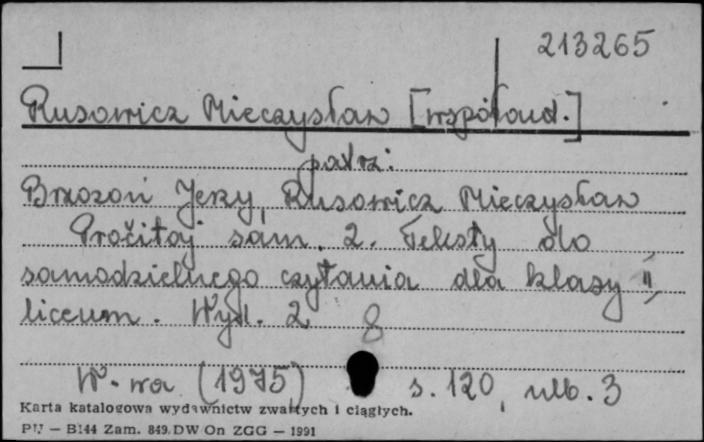 213265
Rusowicz Mieczysław [współaut.]
patrz:
Brzozoń Jerzy, Rusowicz Mieczysław
Pročitaj sam. 2. Teksty do
samodzielnego czytania dla klasy II
liceum. Wyd. 2
8
W-wa (1975) s. 120, nlb. 3
Karta katalogowa wydawnictw zwartych i ciągłych.
PU — B144 Zam. 849. DW On ZGG — 1991